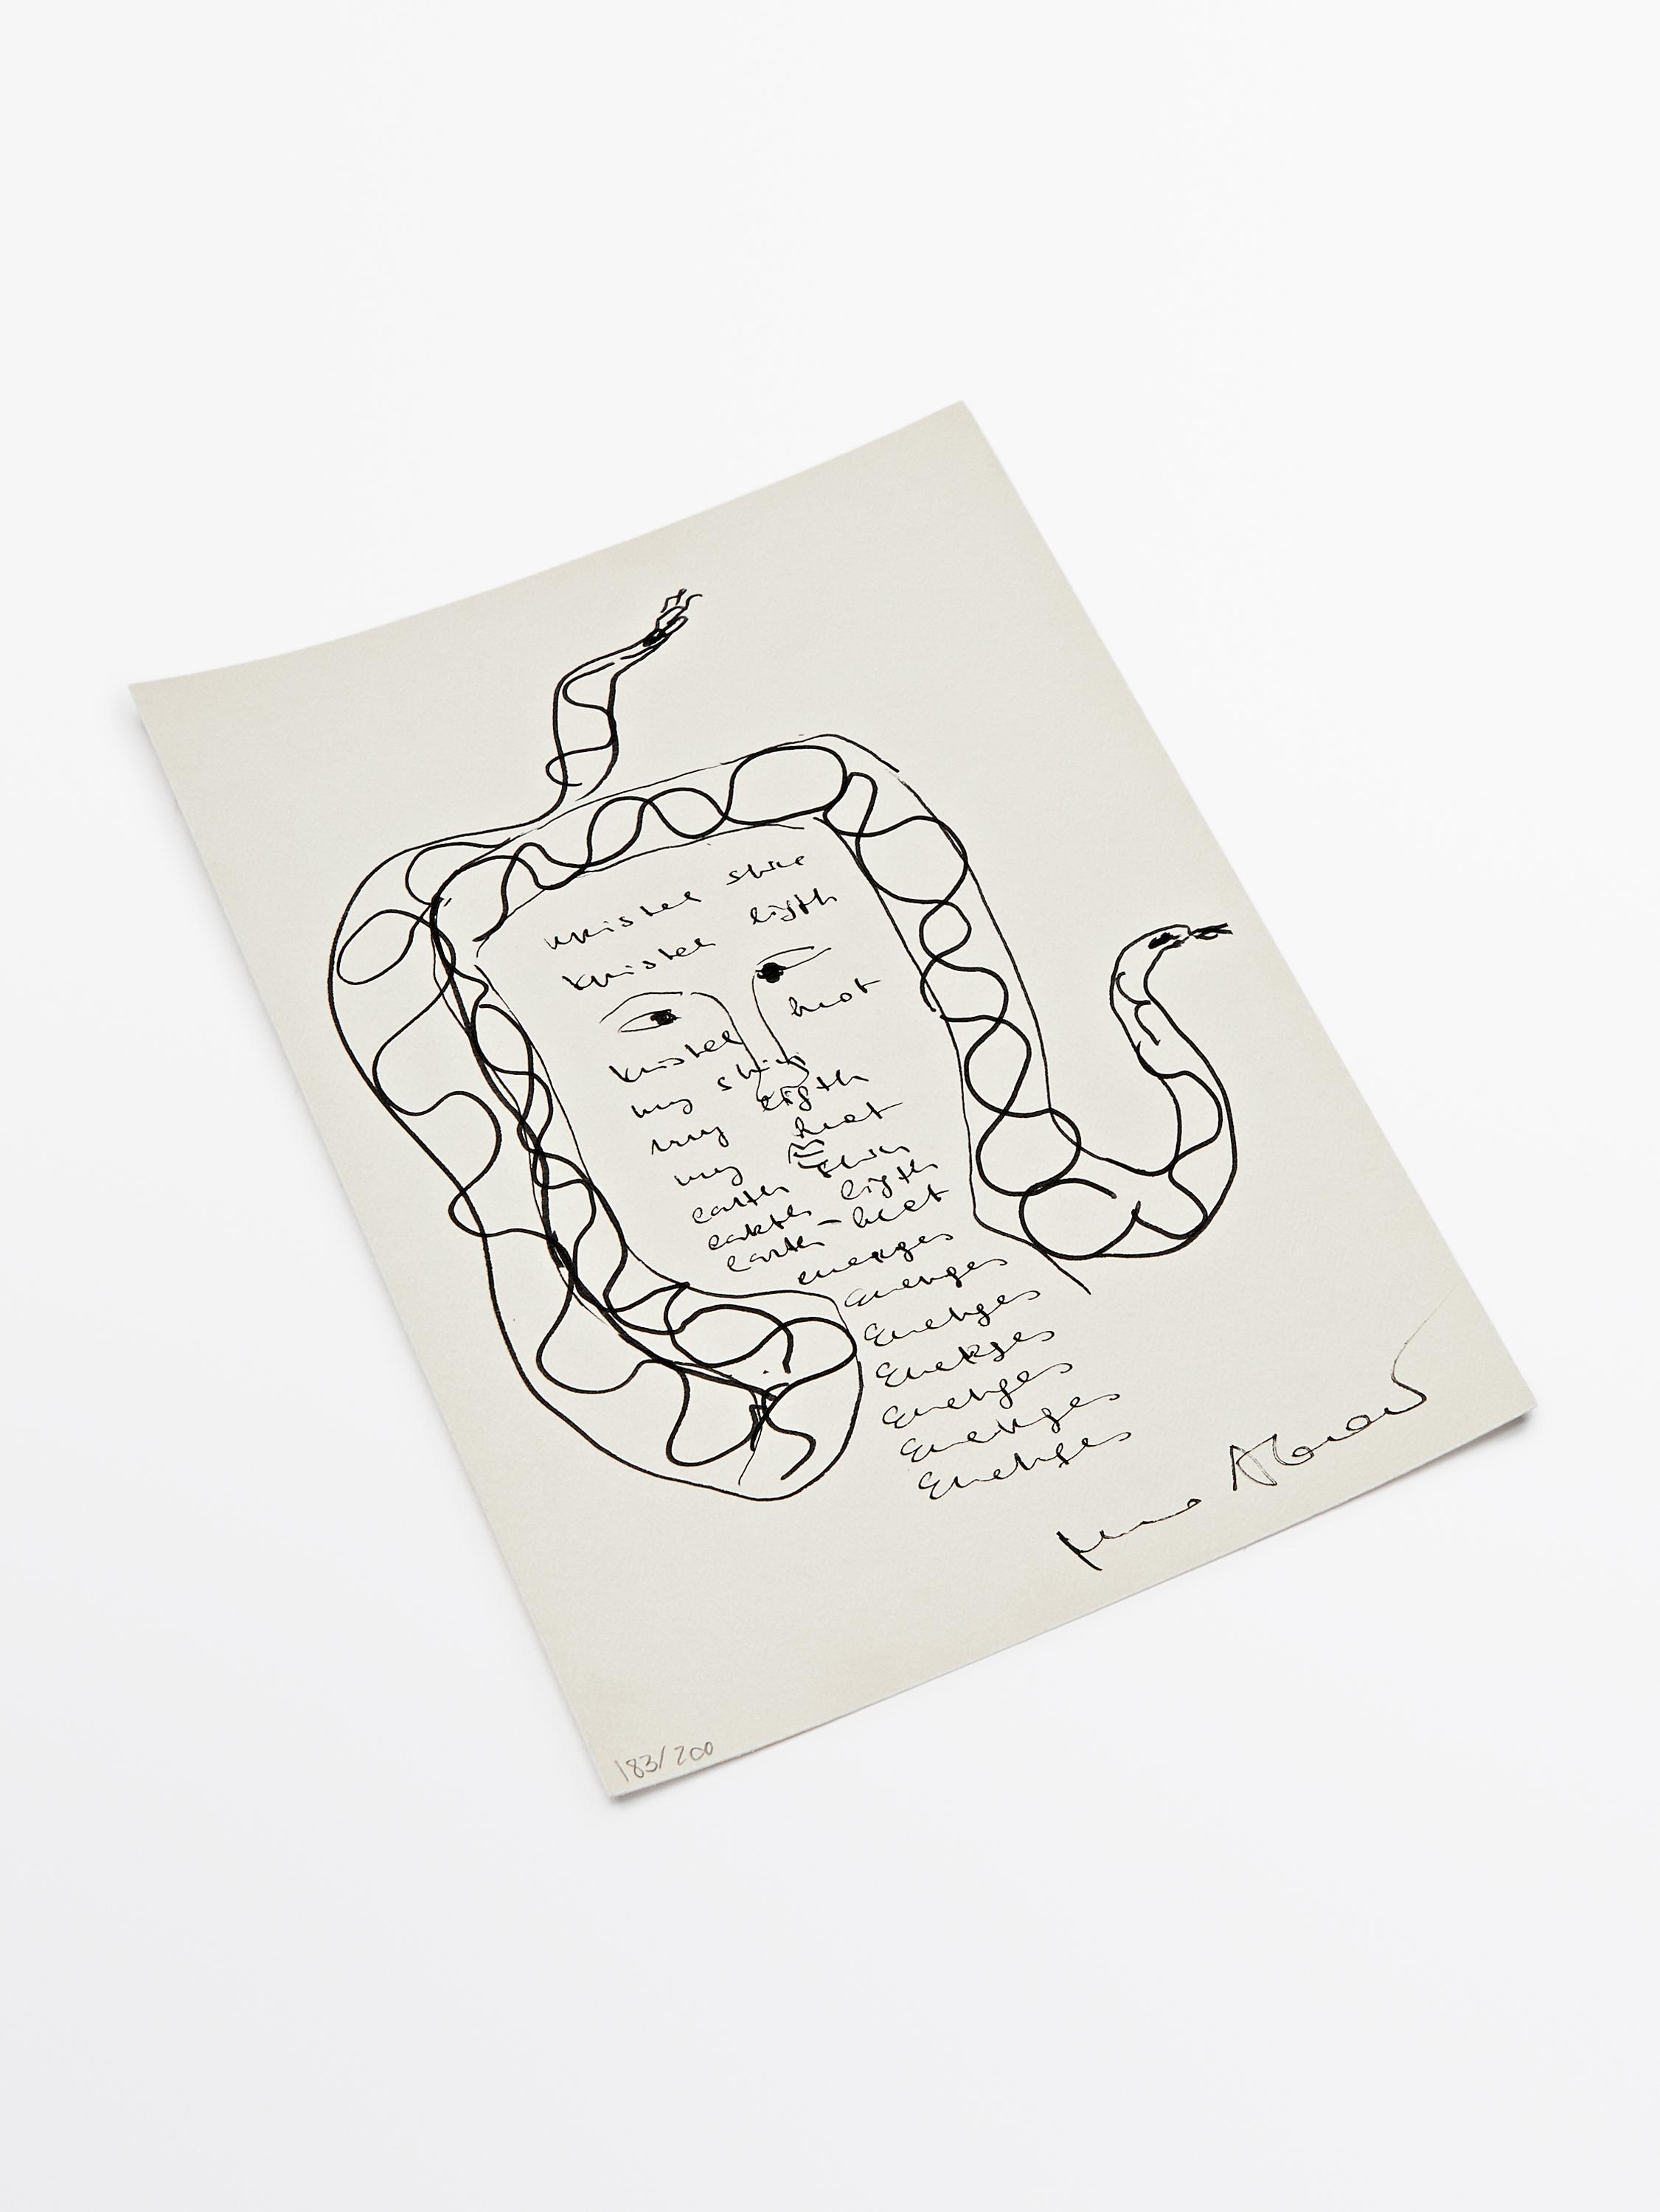 kristel shie
kristel ligth
kristel heat
my shin
my ligth
my heat
earth shin
earth ligth
earth - heat
energes
Energes
Energes
Energes
Energes
Energes
Energes
183/200